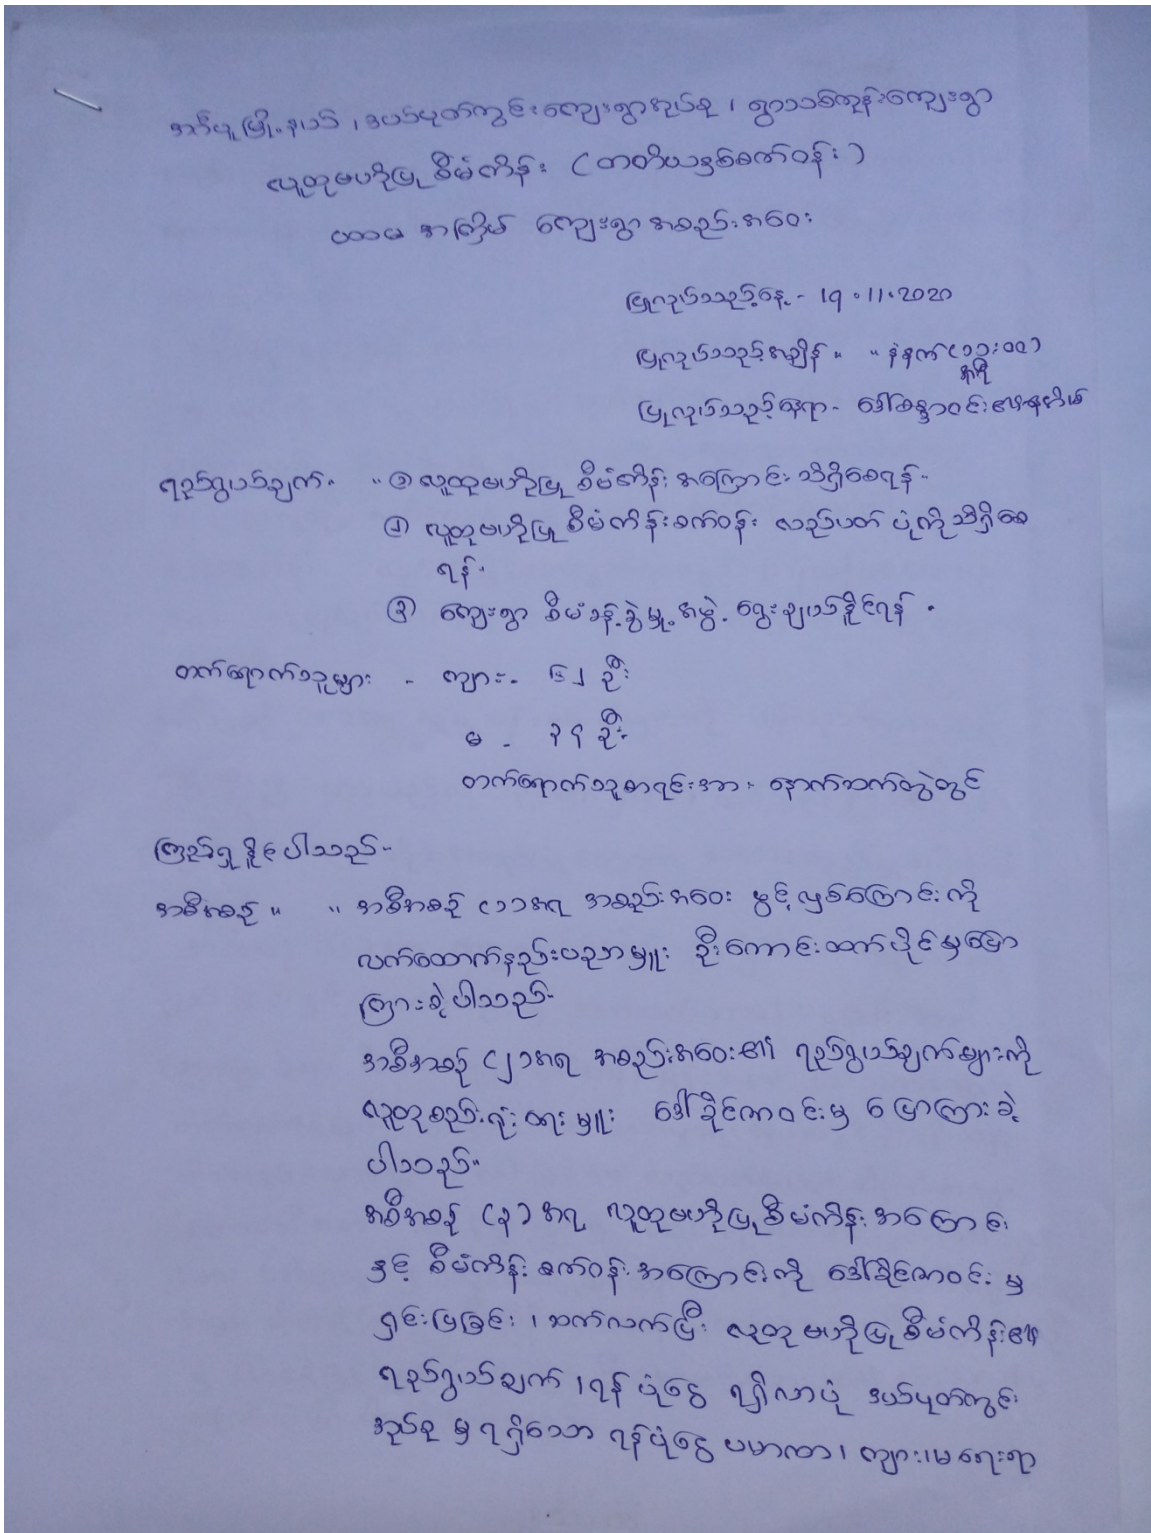 အင်္ဂပူမြို့နယ် ၊ ဒယ်ပုတ်ကွင်းကျေးရွာအုပ်စု ၊ ရွာသစ်ကုန်းကျေးရွာ
လူထုဗဟိုပြု စီမံကိန်း ( တတိယနှစ်စက်ဝန်း )
ပထမ အကြိမ် ကျေးရွာ အစည်းအဝေး
ပြုလုပ်သည့်နေ့ - 19.11.2020
ပြုလုပ်သည့်အချိန် " " နံနက် (၁၁:၀၀)
နာရီ
ပြုလုပ်သည့်နေရာ -
ရည်ရွယ်ချက် " " ① လူထုဗဟိုပြု စီမံကိန်း အကြောင်း သိရှိစေရန် ။
② လူထုဗဟိုပြု စီမံကိန်းစက်ဝန်း လည်ပတ် ပုံကိုသိရှိစေ
ရန် ။
③ ကျေးရွာ စီမံခန့်ခွဲမှု့ အဖွဲ့ ရွေးချယ်နိုင်ရန် ။
တက်ရောက်သူများ - ကျား - ၆၂ ဦး
မ - ၃၄ ဦး
တက်ရောက်သူစာရင်းအား နောက်ဆက်တွဲတွင်
ကြည့်ရှုနိုင်ပါသည် ။
အစီအစဉ် " " အစီအစဉ် (၁)အရ အစည်းအဝေး ဖွင့်လှစ်ကြောင်းကို
လက်ထောက်နည်းပညာမှူး ဦးကောင်းထက်ပိုင်မှပြော
ကြားခဲ့ပါသည် ။
အစီအစဉ် (၂)အရ အစည်းအဝေး၏ ရည်ရွယ်ချက်များကို
လူထုစည်းရုံးရေးမှူး ဒေါ်ခိုင်ဇာဝင်းမှ ပြောကြားခဲ့
ပါသည်။
အစီအစဉ် (၃) အရ လူထုဗဟိုပြု စီမံကိန်းအကြောင်း
နှင့် စီမံကိန်း စက်ဝန်းအကြောင်းကို ဒေါ်ခိုင်ဇာဝင်း မှ
ရှင်းပြခြင်း ၊ ဆက်လက်ပြီး လူထုဗဟိုပြုစီမံကိန်း၏
ရည်ရွယ်ချက် ၊ ရန်ပုံငွေ ရရှိလာပုံ ဒယ်ပုတ်ကွင်း
အုပ်စု မှ ရရှိသော ရန်ပုံငွေ ပမာဏ ၊ ကျား၊မ ရေးရာ